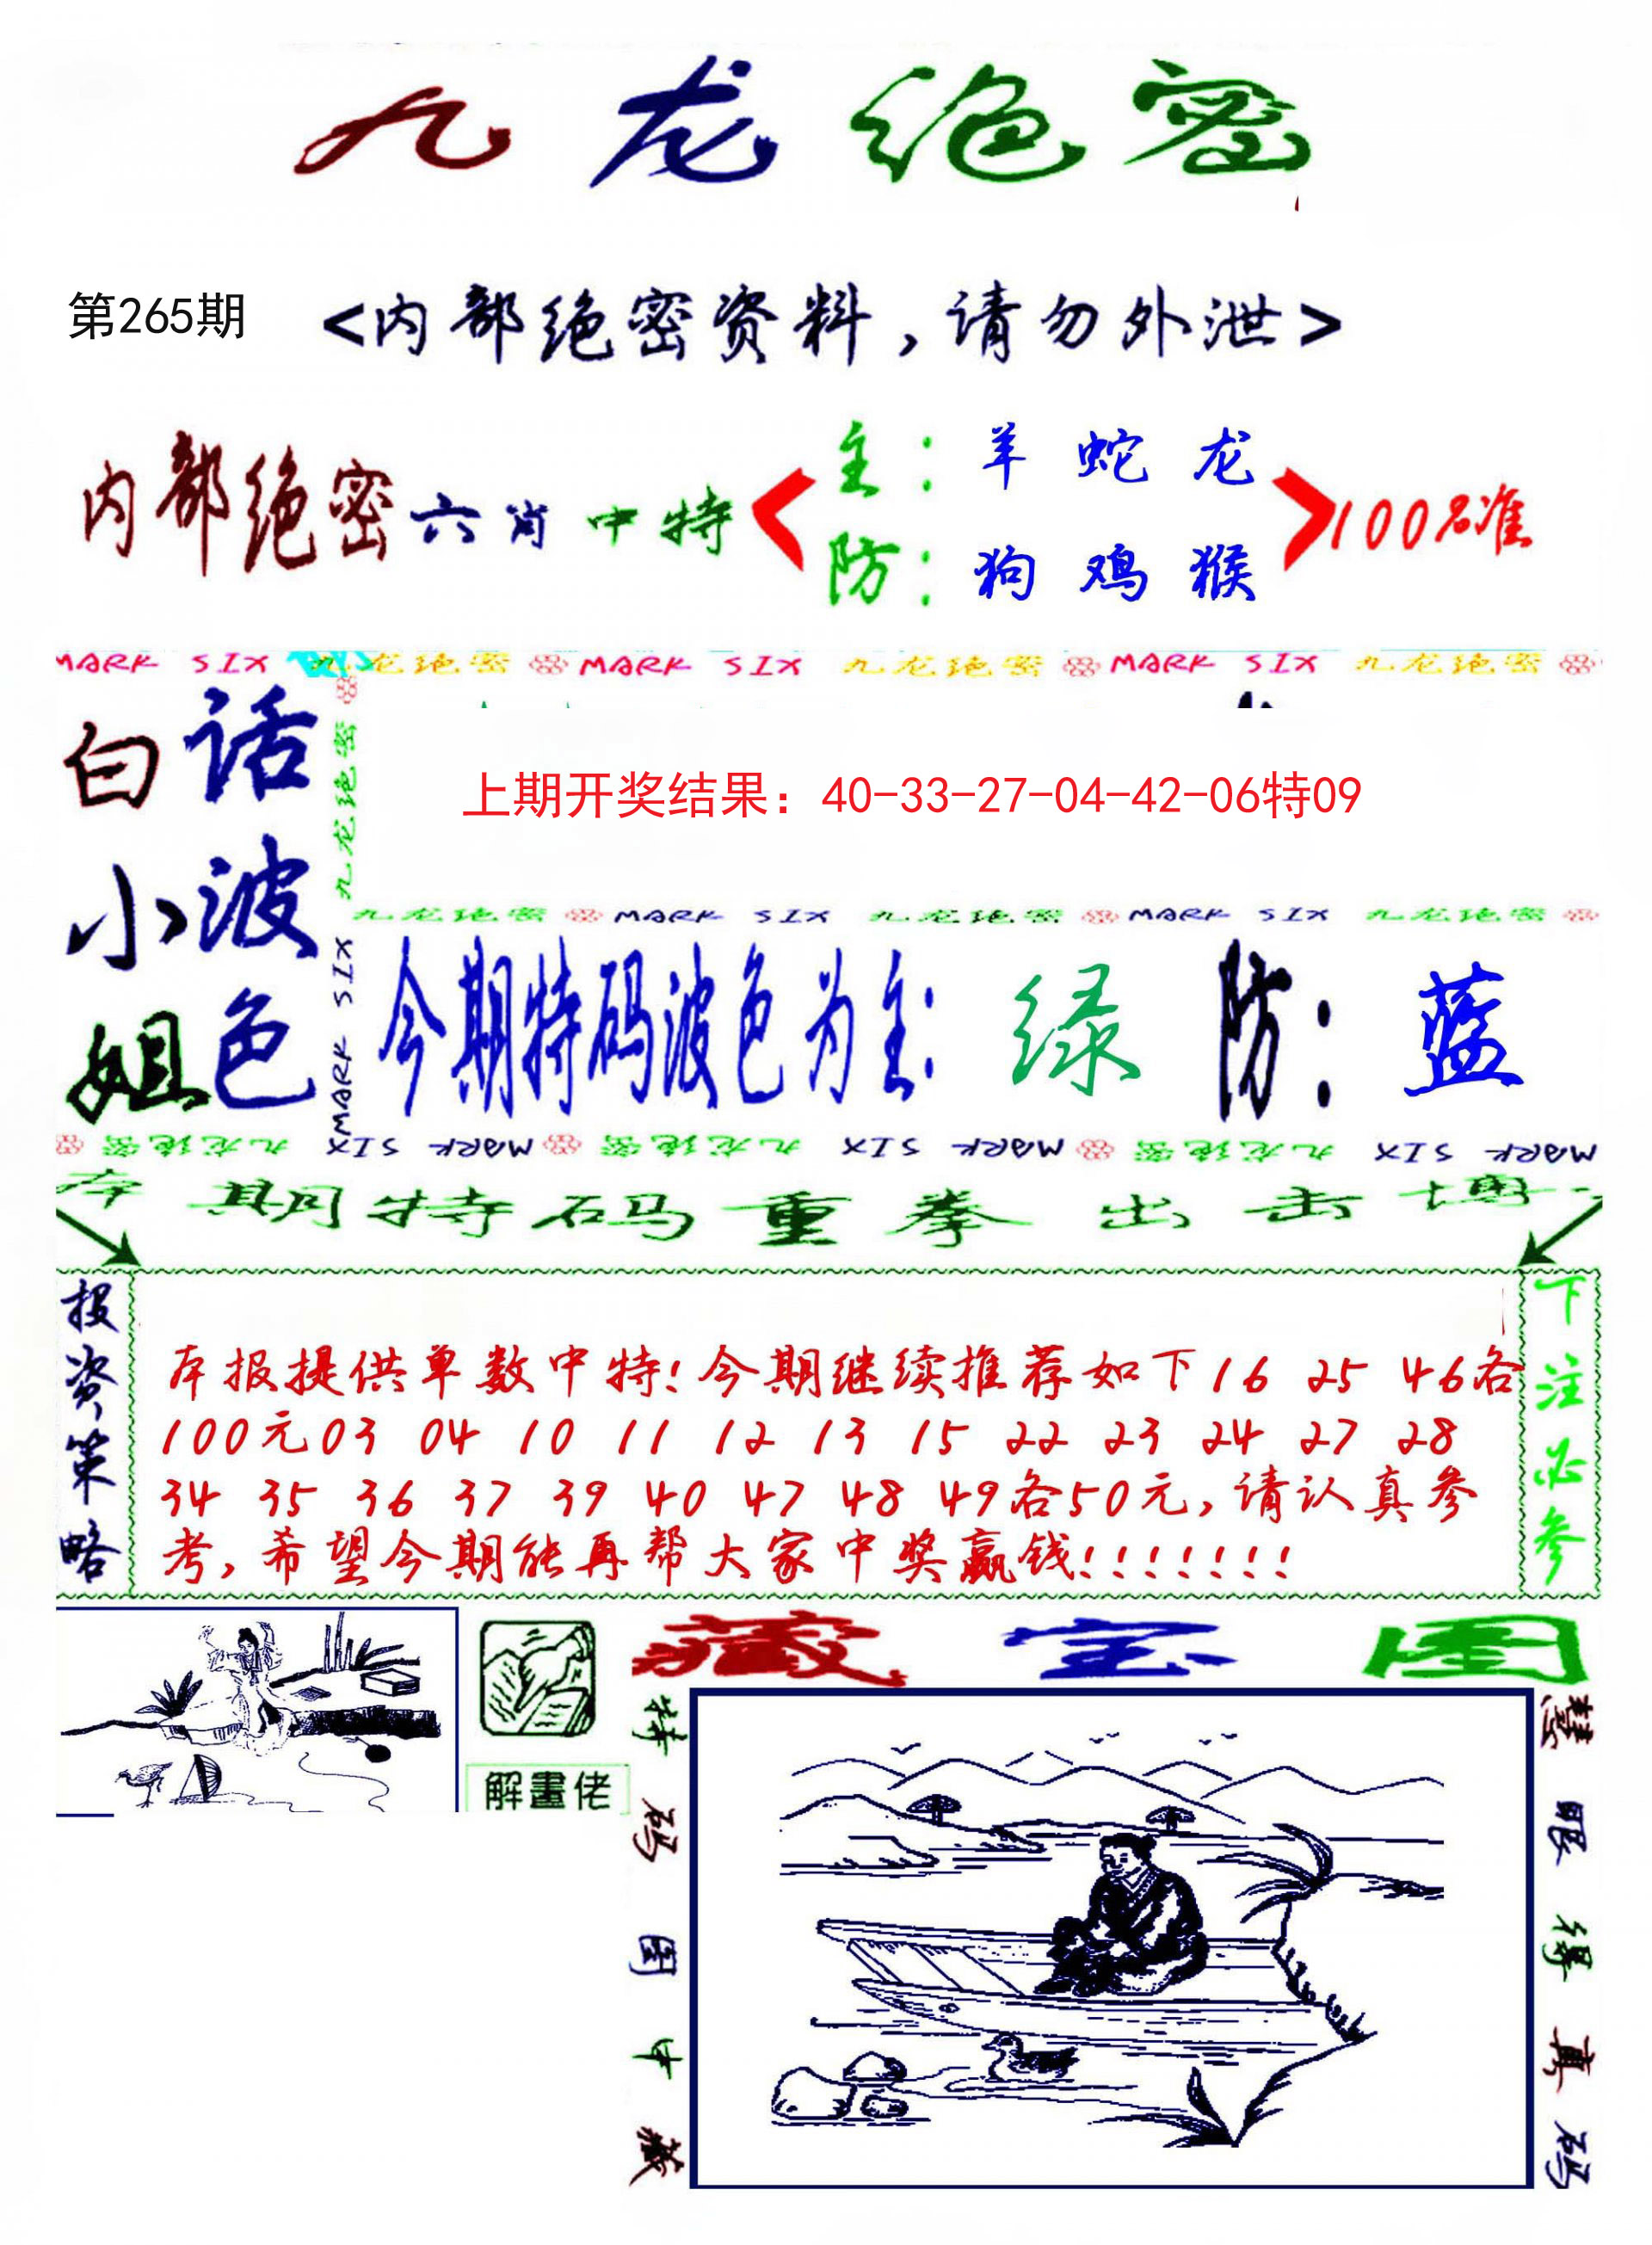 九龙绝密
第265期 <内部绝密资料,请勿外泄>
内部绝密六肖中特
主:羊 蛇 龙
防:狗 鸡 猴
100%准
MARK SIX 九龙绝密 MARK SIX 九龙绝密 MARK SIX 九龙绝密
白小姐
话波色
九龙绝密 MARK SIX
上期开奖结果：40-33-27-04-42-06特09
九龙绝密 MARK SIX 九龙绝密 MARK SIX 九龙绝密
今期特码波色为主:绿 防:蓝
MARK SIX 九龙绝密 MARK SIX 九龙绝密 MARK SIX 九龙绝密
本期特码重拳出击博
投资策略
本报提供单数中特!今期继续推荐如下16 25 46各
100元03 04 10 11 12 13 15 22 23 24 27 28
34 35 36 37 39 40 47 48 49各50元,请认真参
考,希望今期能再帮大家中奖赢钱!!!!!!!
下注必参
解畫佬
藏宝图
特码图中藏
慧眼得真码